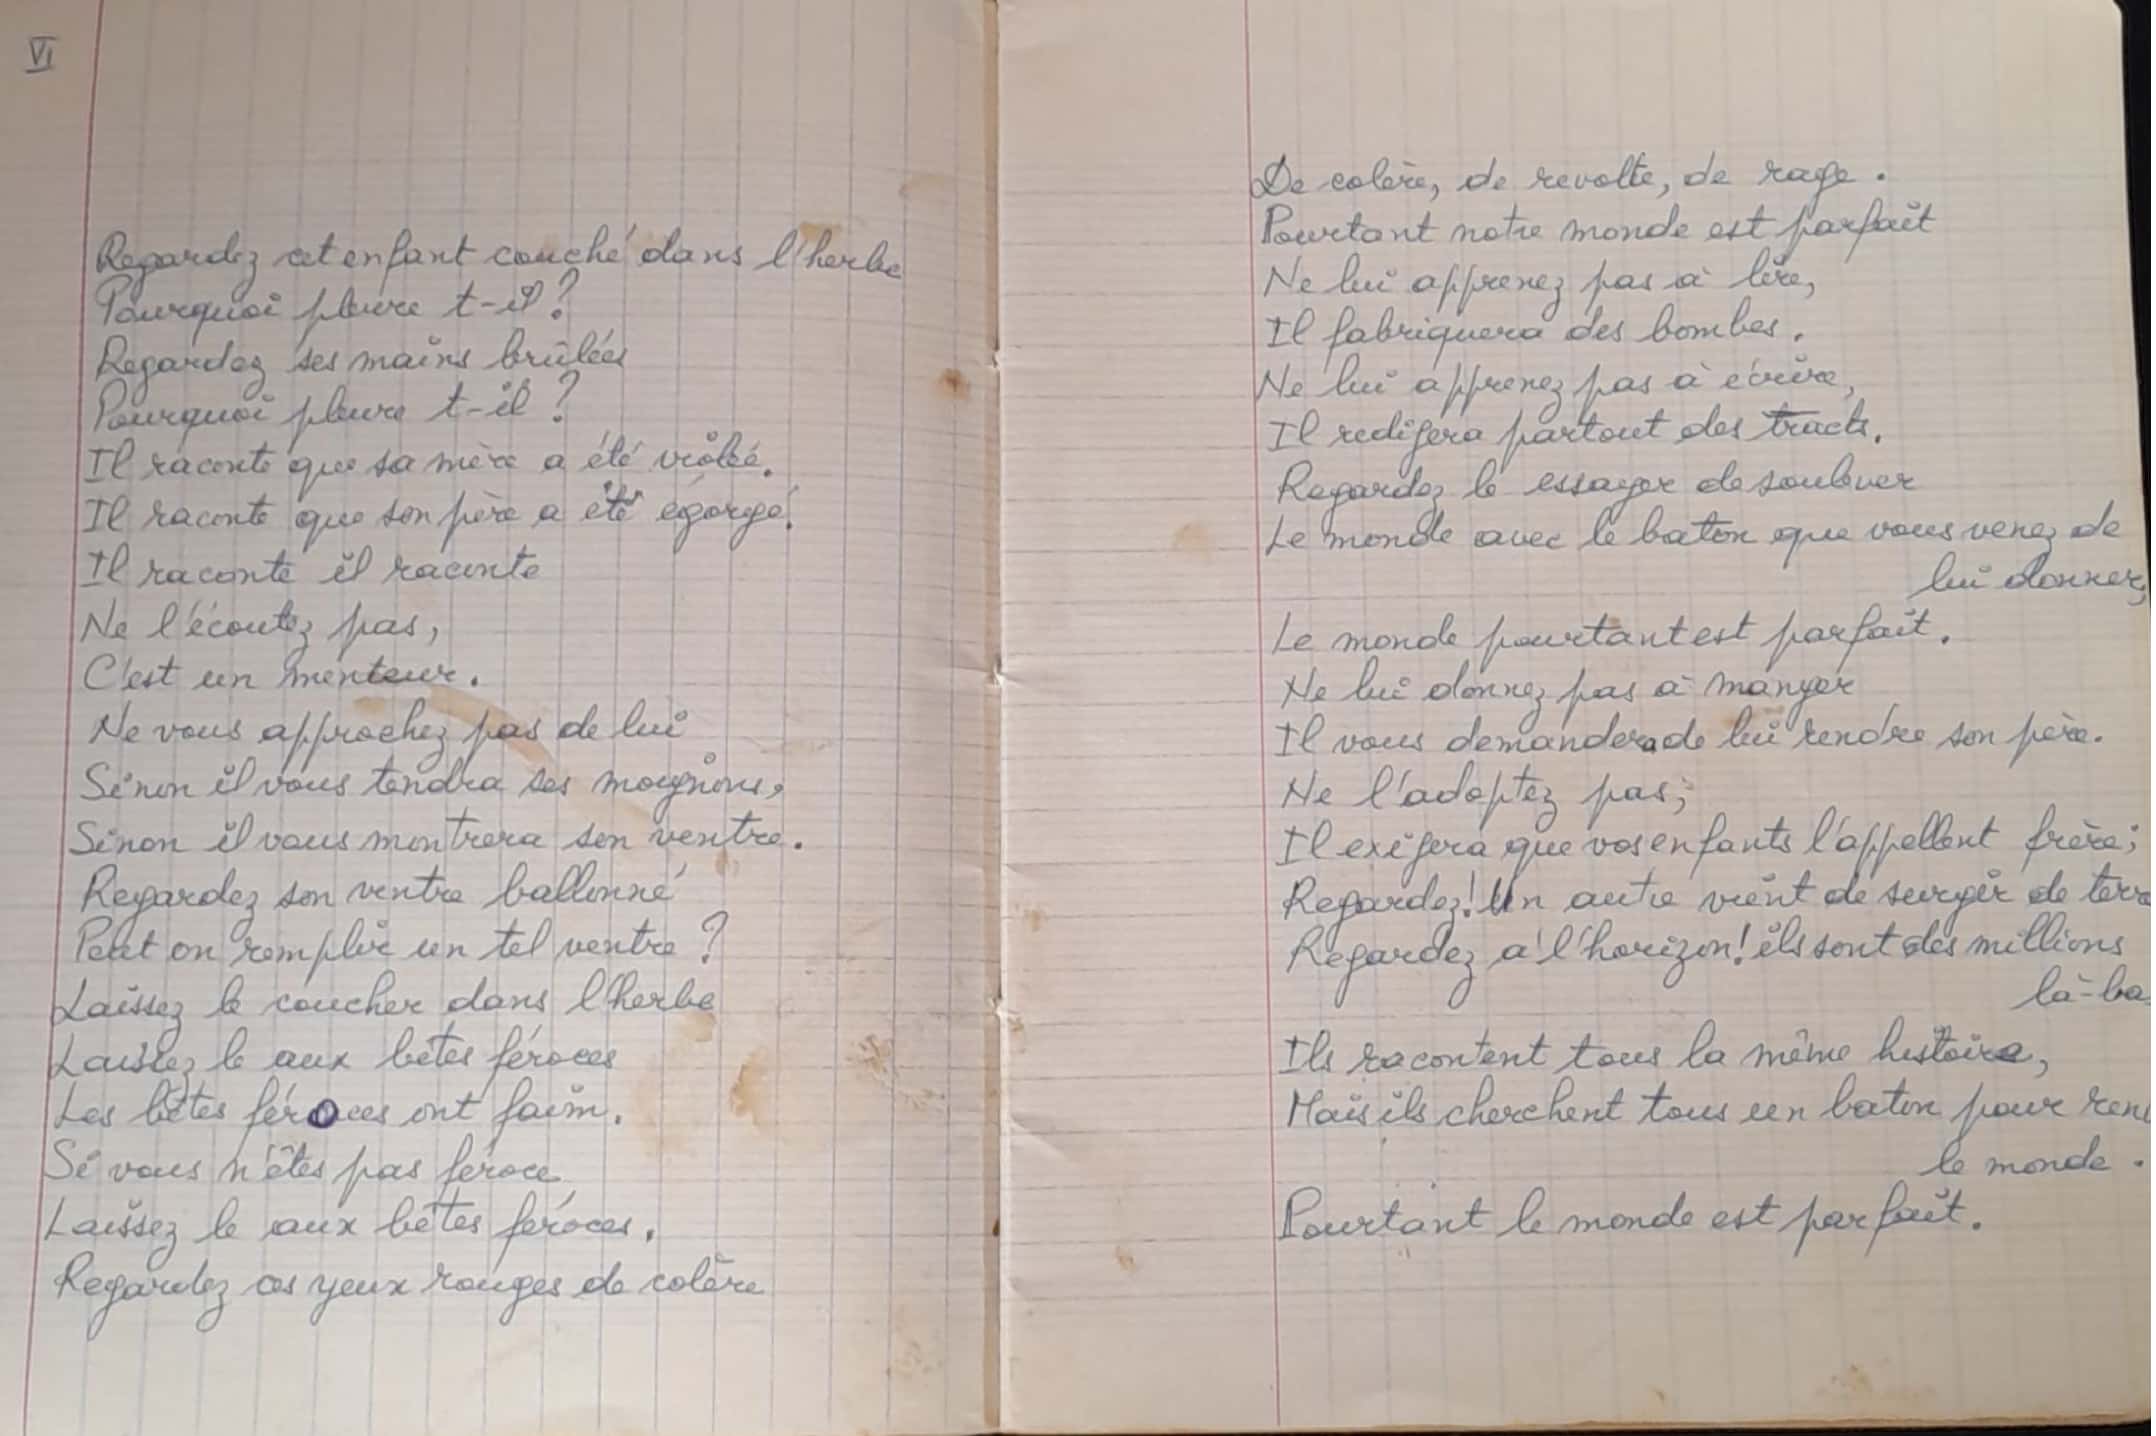 VI
Regardez cet enfant couché dans l'herbe
Pourquoi pleure t-il ?
Regardez ses mains brûlées
Pourquoi pleure t-il ?
Il raconte que sa mère a été violée.
Il raconte que son père a été égorgé.
Il raconte il raconte
Ne l'écoutez pas,
C'est un menteur.
Ne vous approchez pas de lui
Sinon il vous tendra ses moignons,
Sinon il vous montrera son ventre.
Regardez son ventre ballonné
Peut on remplir un tel ventre ?
Laissez le coucher dans l'herbe
Laissez le aux bêtes féroces
Les bêtes féroces ont faim.
Si vous n'êtes pas féroce
Laissez le aux bêtes féroces.
Regardez ces yeux rouges de colère
De colère, de revolte, de rage.
Pourtant notre monde est parfait
Ne lui apprenez pas à lire,
Il fabriquera des bombes.
Ne lui apprenez pas à écrire,
Il redigera partout des tracts.
Regardez le essayer de soulever
Le monde avec le baton que vous venez de
lui donner,
Le monde pourtant est parfait.
Ne lui donnez pas à manger
Il vous demandera de lui rendre son père.
Ne l'adoptez pas;
Il exigera que vos enfants l'appellent frère;
Regardez! Un autre vient de surgir de terre
Regardez à l'horizon! ils sont des millions
là-ba
Ils racontent tous la même histoire,
Mais ils cherchent tous un baton pour ren
le monde.
Pourtant le monde est parfait.